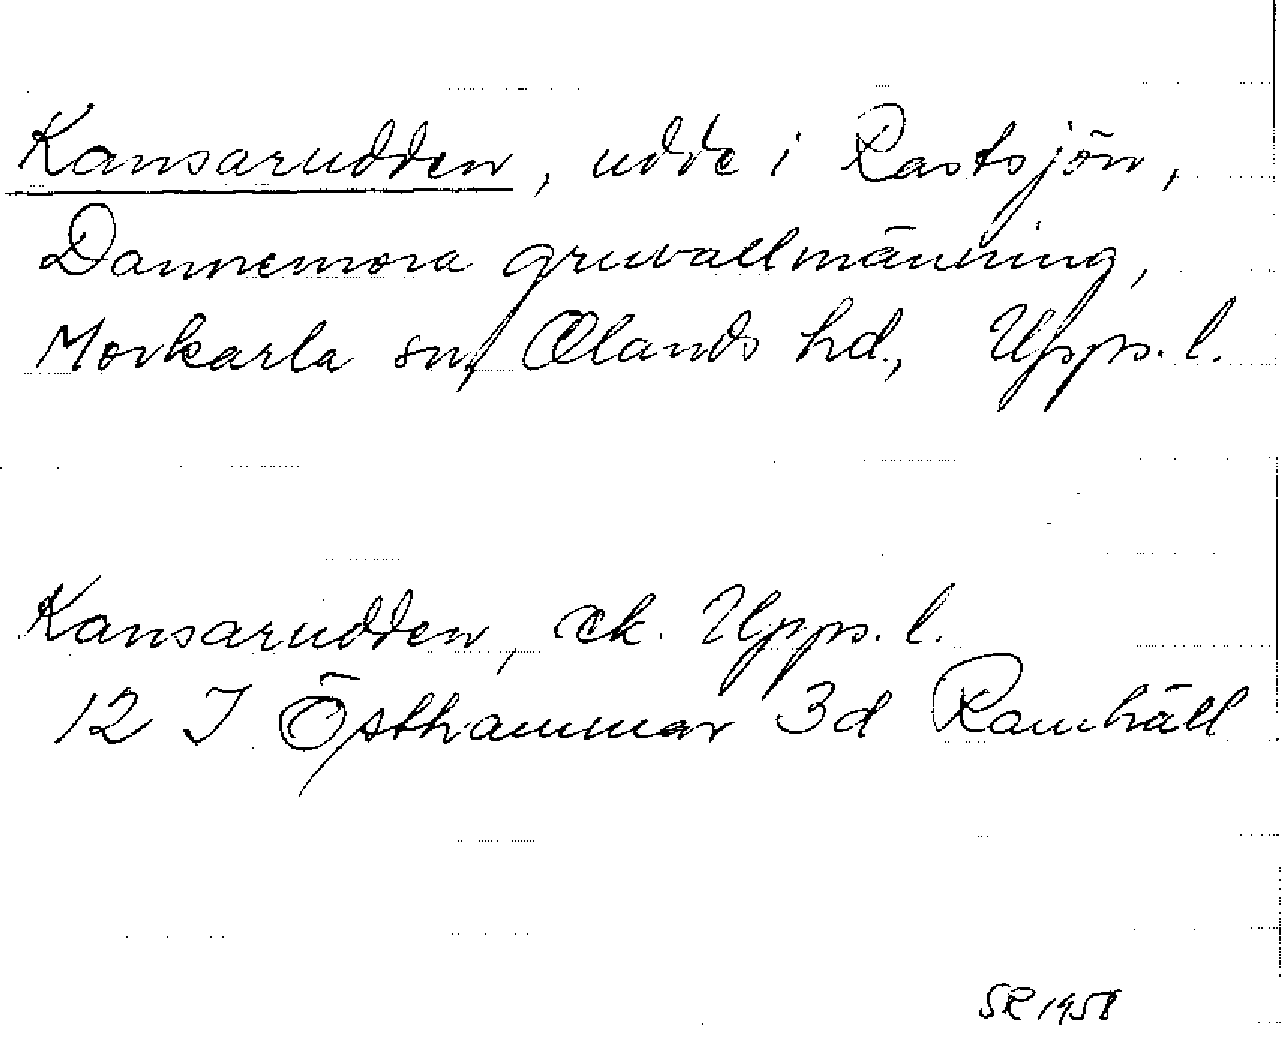 Kansarudden, udde i Rastsjön,
Dannemora gruvallmänning,
Morkarla sn, Olands hd., Upps. l.
Kansarudden, ek. Upps. l.
12 I Östhammar 3d Ramhäll
SR 1958